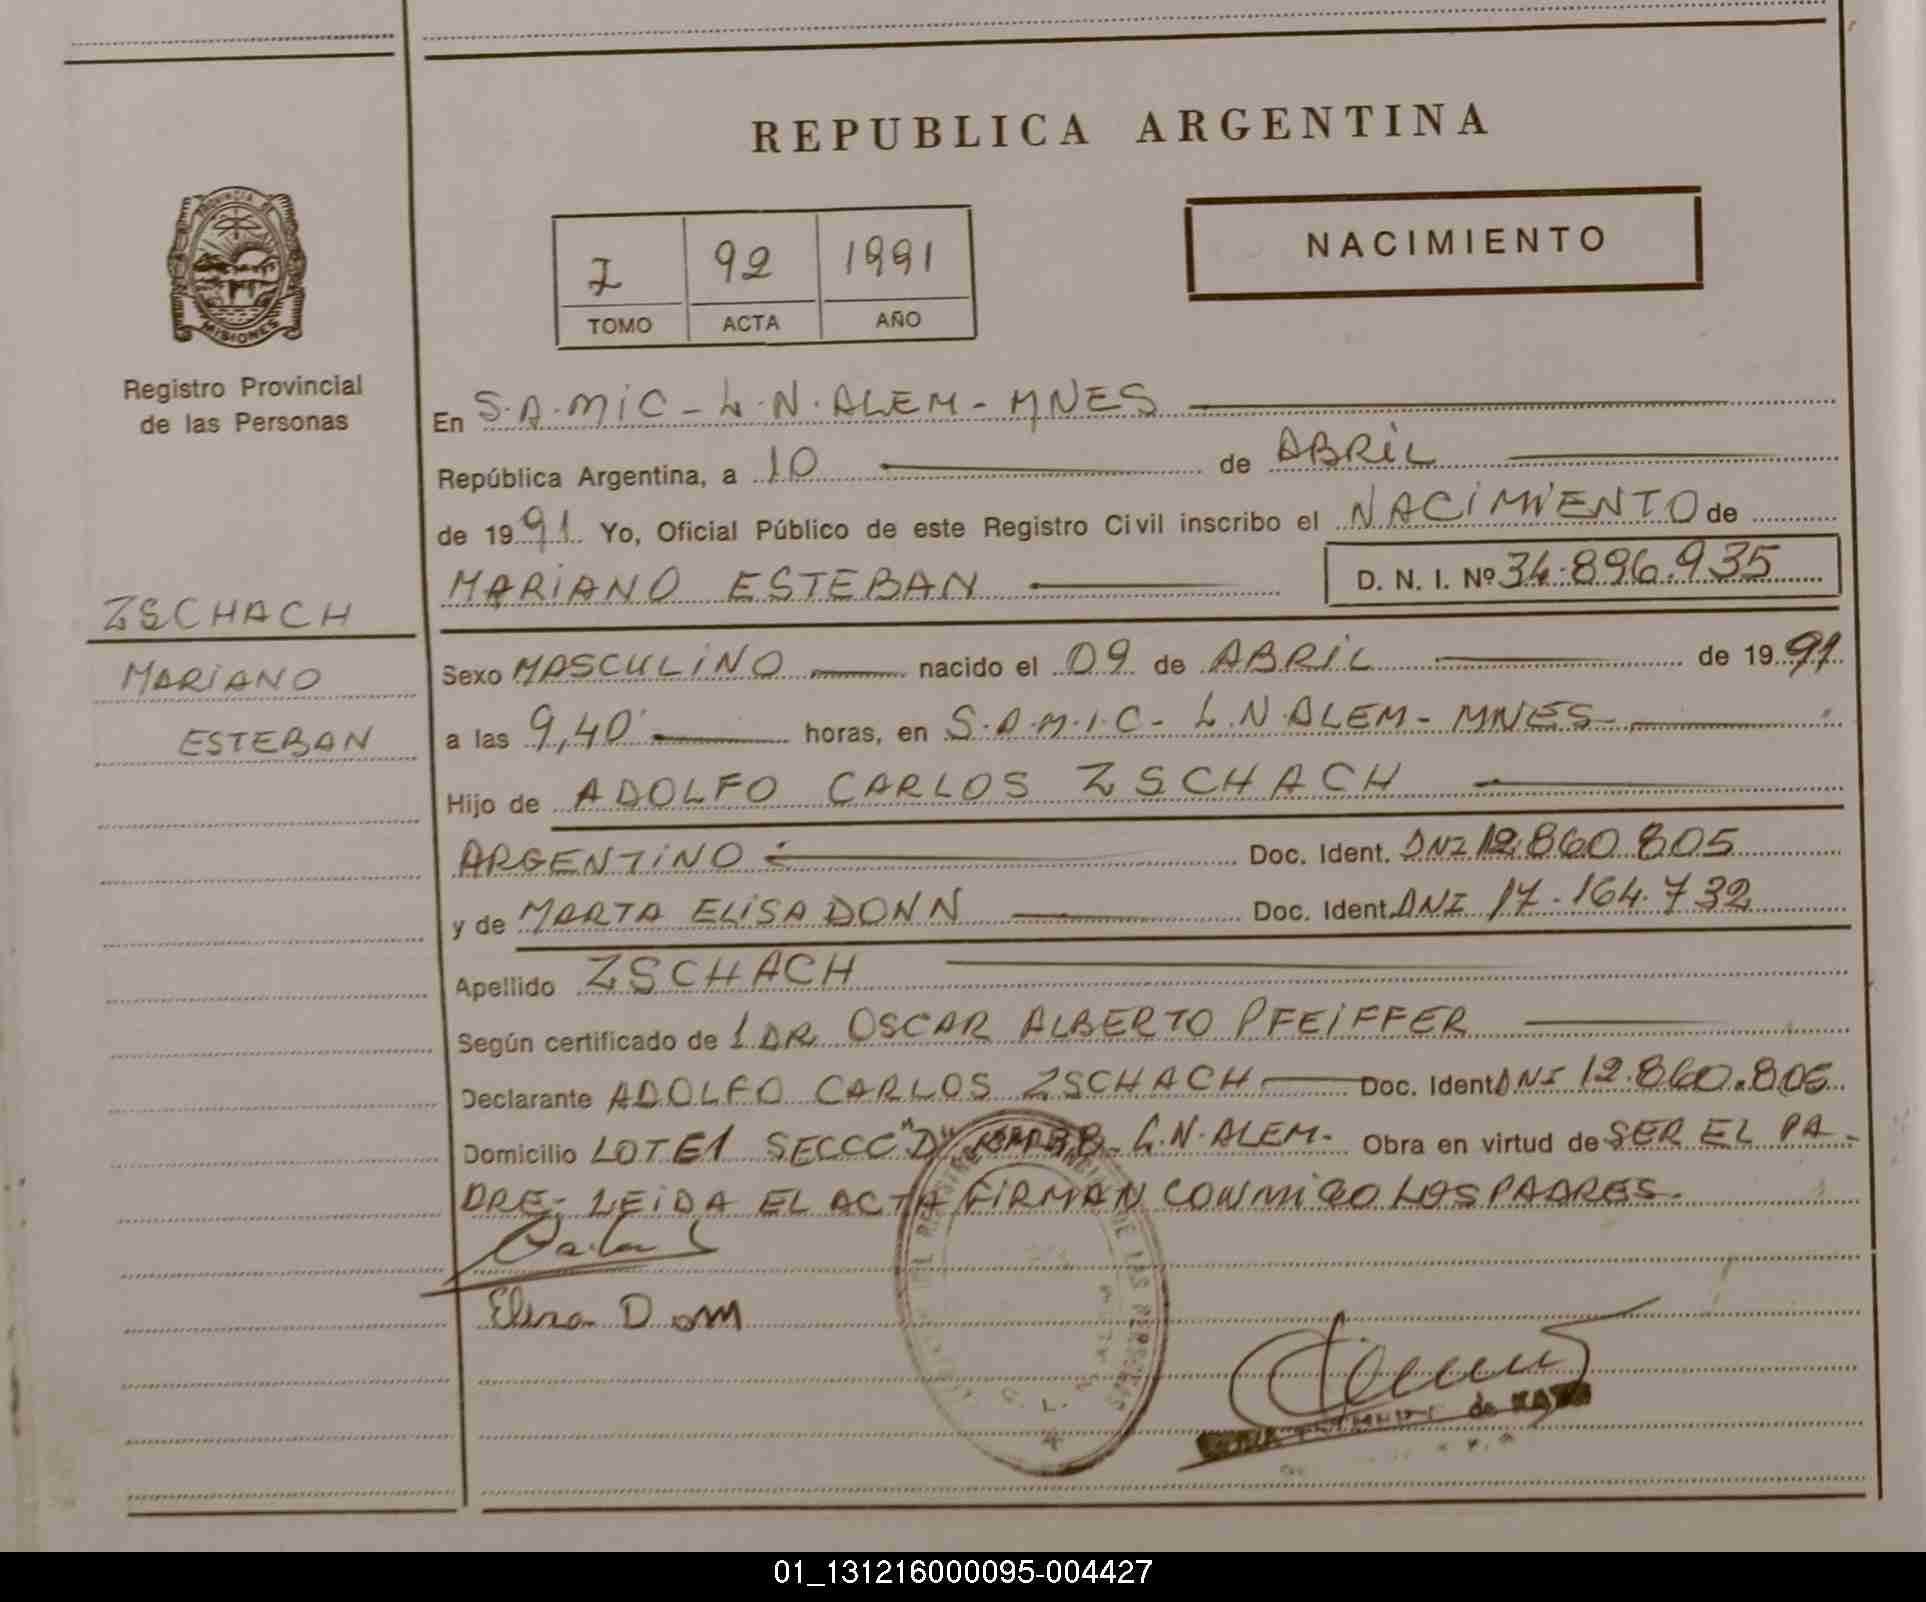 REPUBLICA ARGENTINA
PROVINCIA DE
MISIONES
Registro Provincial
de las Personas
NACIMIENTO
92 1991
TOMO ACTA AÑO
En S.A.MIC - L.N.ALEM - MNES
República Argentina, a 10 de ABRIL
de 1991 Yo, Oficial Público de este Registro Civil inscribo el NACIMIENTO de
MARIANO ESTEBAN D. N. I. Nº 34.896.935
ZSCHACH
MARIANO
ESTEBAN
Sexo MASCULINO nacido el 09 de ABRIL de 1991
a las 9,40 horas, en S.A.M.I.C - L.N.ALEM - MNES -
Hijo de ADOLFO CARLOS ZSCHACH
ARGENTINO Doc. Ident. DNI 12.860.805
y de MARTA ELISA DONN Doc. Ident. DNI 17.164.732
Apellido ZSCHACH
Según certificado de 1 DR. OSCAR ALBERTO PFEIFFER
Declarante ADOLFO CARLOS ZSCHACH Doc. Ident. DNI 12.860.805
Domicilio LOTE 1 SECCC "D" L.N.ALEM. Obra en virtud de SER EL PA-
DRE; LEIDA EL ACTA FIRMAN CONMIGO LOS PADRES.
Elisa Donn
de
01_131216000095-004427